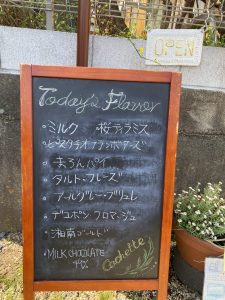 OPEN
Today's Flavor
・ミルク 桜ティラミス
・ピスタチオフランボワーズ
・まろんパイ
・タルト・フレーズ
・アールグレー・ブリュレ
・デコポン フロマージュ
・湘南ゴールド
・MILK CHOCOLATE
Cachette